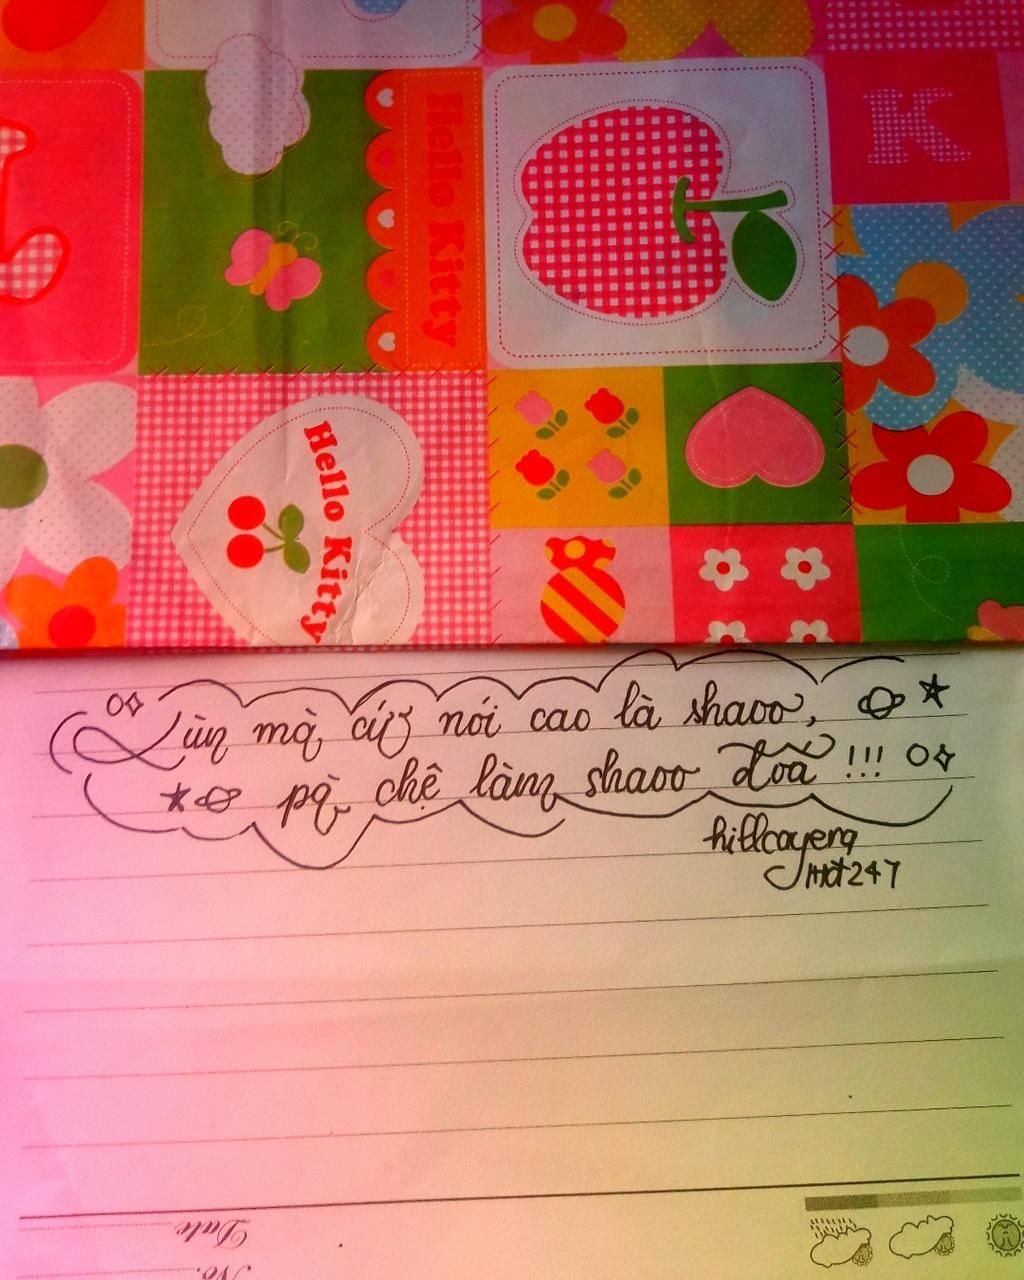 Hello Kitty
K
Hello Kitty
Lùn mà cứ nói cao là shaoo,
pà chệ làm shaoo đoá !!!
hillcayenq
Date
No.